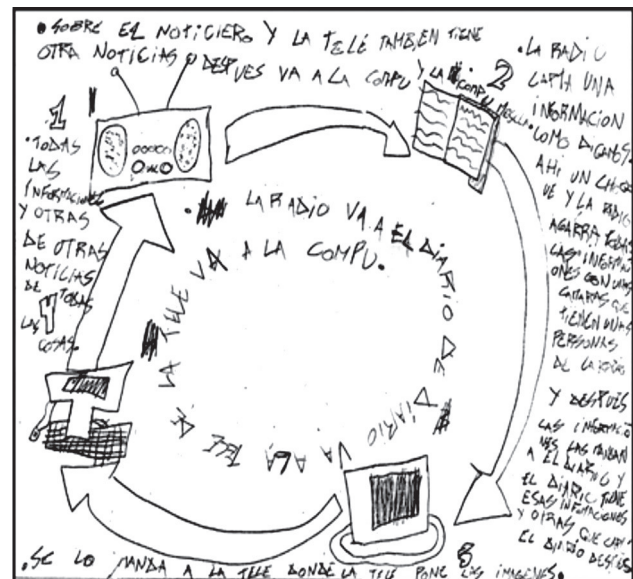 • SOBRE EL NOTICIERO Y LA TELÉ TAMBIEN TIENE
OTRA NOTICIAS Y DESPUES VA A LA COMPU Y LA COMPU MESCLA
1
• TODAS
LAS
INFORMACIONES
Y OTRAS
DE OTRAS
NOTICIAS
DE TODAS
LAS
COSAS.
4
2
• LA RADIO
CAPTA UNA
INFORMACION
COMO DIGAMOS
AHI UN CHOQ
UE Y LA RADIO
AGARRA TODAS
LAS INFORMACI
ONES CON UNAS
QUE
TIENEN UNAS
PERSONAS
DE LA RADIO
Y DESPUES
LAS INFORMACIO
NES LAS MANDAN
A EL DIARIO Y
EL DIARIO TIENE
ESAS INFORMACIONES
Y OTRAS QUE
EL DIARIO DESPUES
3
• SE LO MANDA A LA TELE DONDE LA TELE PONE LAS IMAGENES.
• LA RADIO VA A EL DIARIO DE DIARIO VA A LA TELE DE LA TELE VA A LA COMPU.